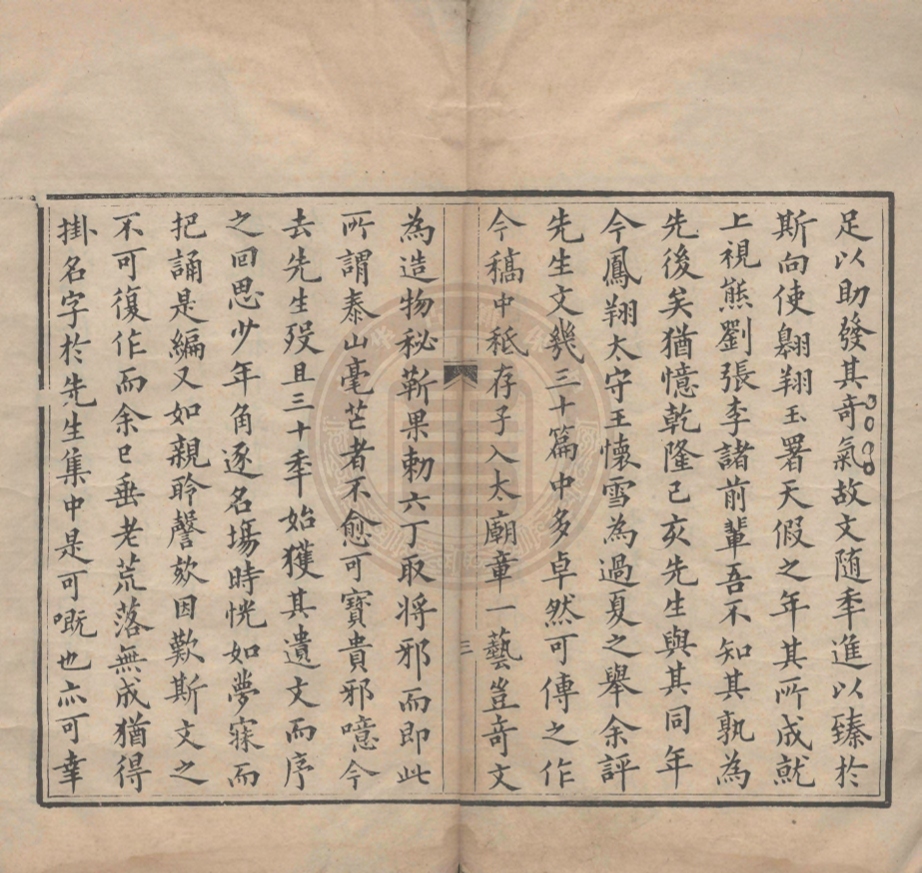 足以助發其奇氣故文随秊進以臻於
斯向使翺翔玉署天假之年其所成就
上視熊劉張李諸前輩吾不知其孰為
先後矣猶憶乾隆己亥先生與其同年
今鳳翔太守王懷雪為過夏之舉余評
先生文幾三十篇中多卓然可傳之作
今稿中秪存子入太廟章一藝豈奇文
三
為造物秘靳果勅六丁取将邪而即此
所謂泰山毫芒者不愈可寶貴邪噫今
去先生歿且三十秊始獲其遺文而序
之回思少年角逐名場時恍如夢寐而
把誦是編又如親聆謦欬因歎斯文之
不可復作而余已垂老荒落無成猶得
掛名字於先生集中是可嘅也亦可幸